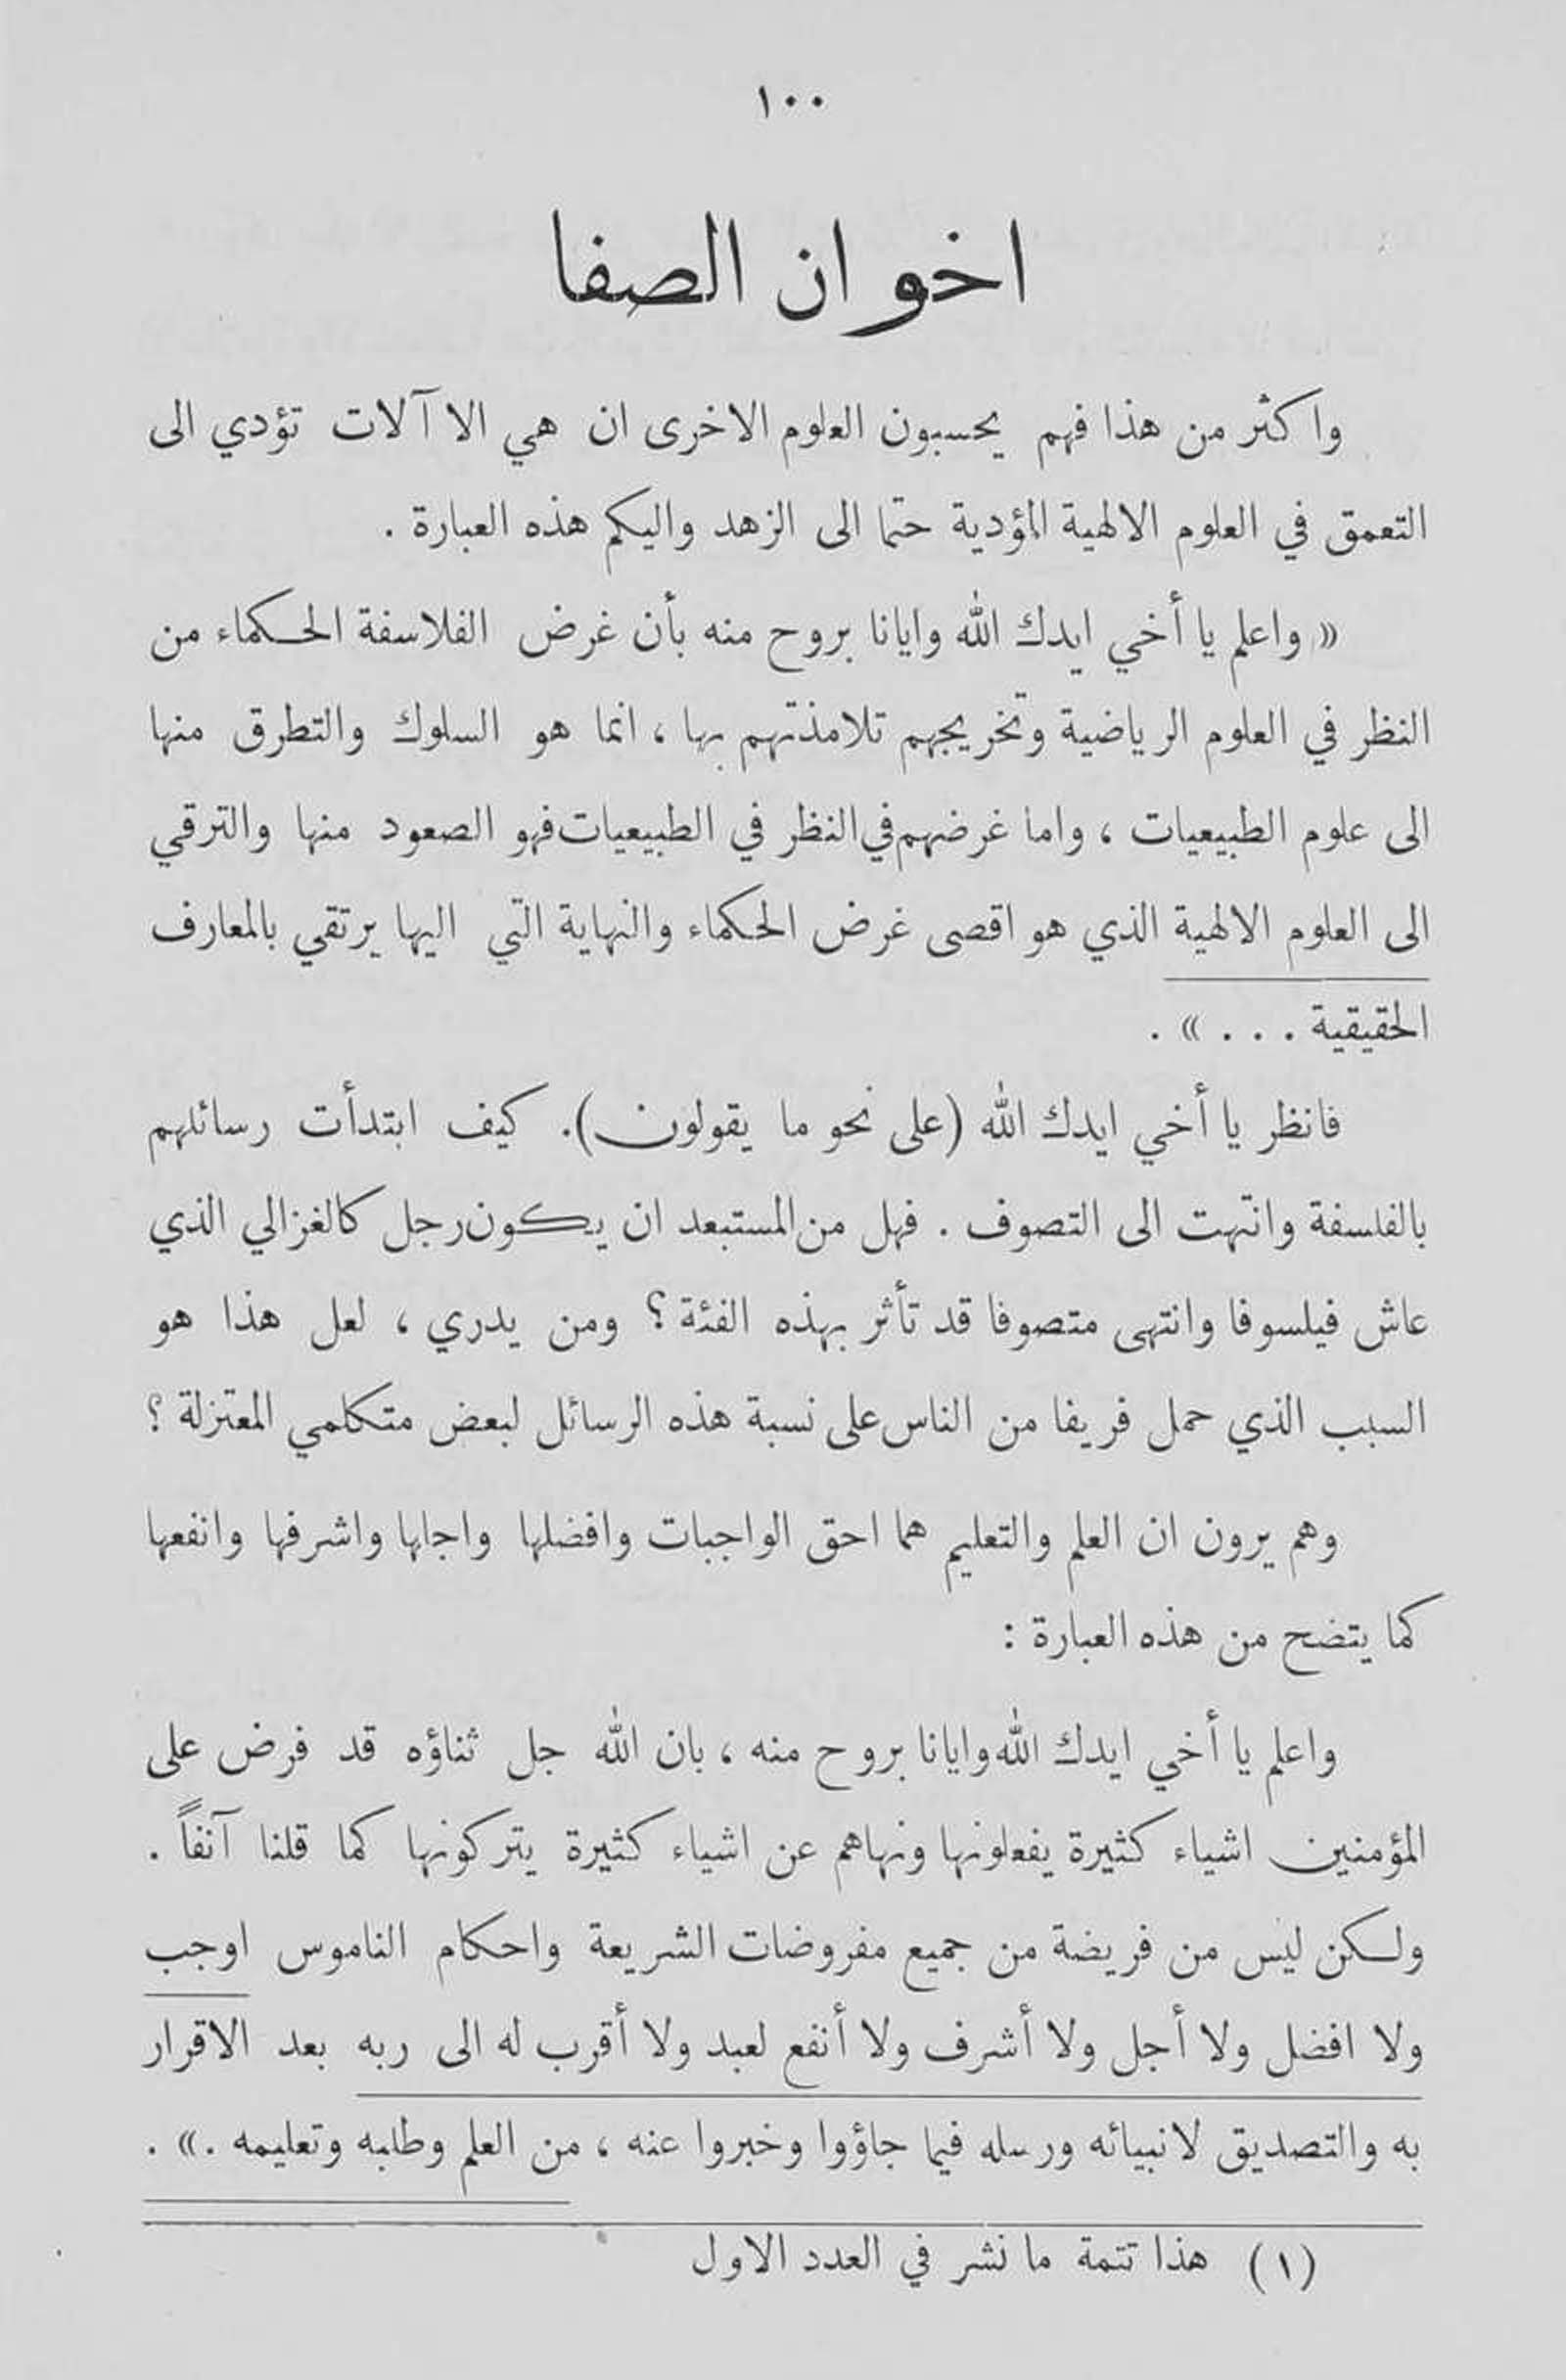 ١٠٠
اخوان الصفا
واكثر من هذا فهم يحسبون العلوم الاخرى ان هي الا آلات تؤدي الى
التعمق في العلوم الالهية المؤدية حتما الى الزهد واليكم هذه العبارة .
« واعلم يا أخي ايدك الله وايانا بروح منه بأن غرض الفلاسفة الحكماء من
النظر في العلوم الرياضية وتخريجهم تلامذتهم بها ، انما هو السلوك والتطرق منها
الى علوم الطبيعيات ، واما غرضهم في النظر في الطبيعيات فهو الصعود منها والترقي
الى العلوم الالهية الذي هو اقصى غرض الحكماء والنهاية التي اليها يرتقي بالمعارف
الحقيقية . . . » .
فانظر يا أخي ايدك الله (على نحو ما يقولون). كيف ابتدأت رسائلهم
بالفلسفة وانتهت الى التصوف . فهل من المستبعد ان يكون رجل كالغزالي الذي
عاش فيلسوفا وانتهى متصوفا قد تأثر بهذه الفئة ؟ ومن يدري ، لعل هذا هو
السبب الذي حمل فريفا من الناس على نسبة هذه الرسائل لبعض متكلمي المعتزلة ؟
وهم يرون ان العلم والتعليم هما احق الواجبات وافضلها واجلها واشرفها وانفعها
كما يتضح من هذه العبارة :
واعلم يا أخي ايدك الله وايانا بروح منه ، بان الله جل ثناؤه قد فرض على
المؤمنين اشياء كثيرة يفعلونها ونهاهم عن اشياء كثيرة يتركونها كما قلنا آنفاً .
ولكن ليس من فريضة من جميع مفروضات الشريعة واحكام الناموس اوجب
ولا افضل ولا أجل ولا أشرف ولا أنفع لعبد ولا أقرب له الى ربه بعد الاقرار
به والتصديق لانبيائه ورسله فيما جاؤوا وخبروا عنه ، من العلم وطلبه وتعليمه .» .
(١) هذا تتمة ما نشر في العدد الاول